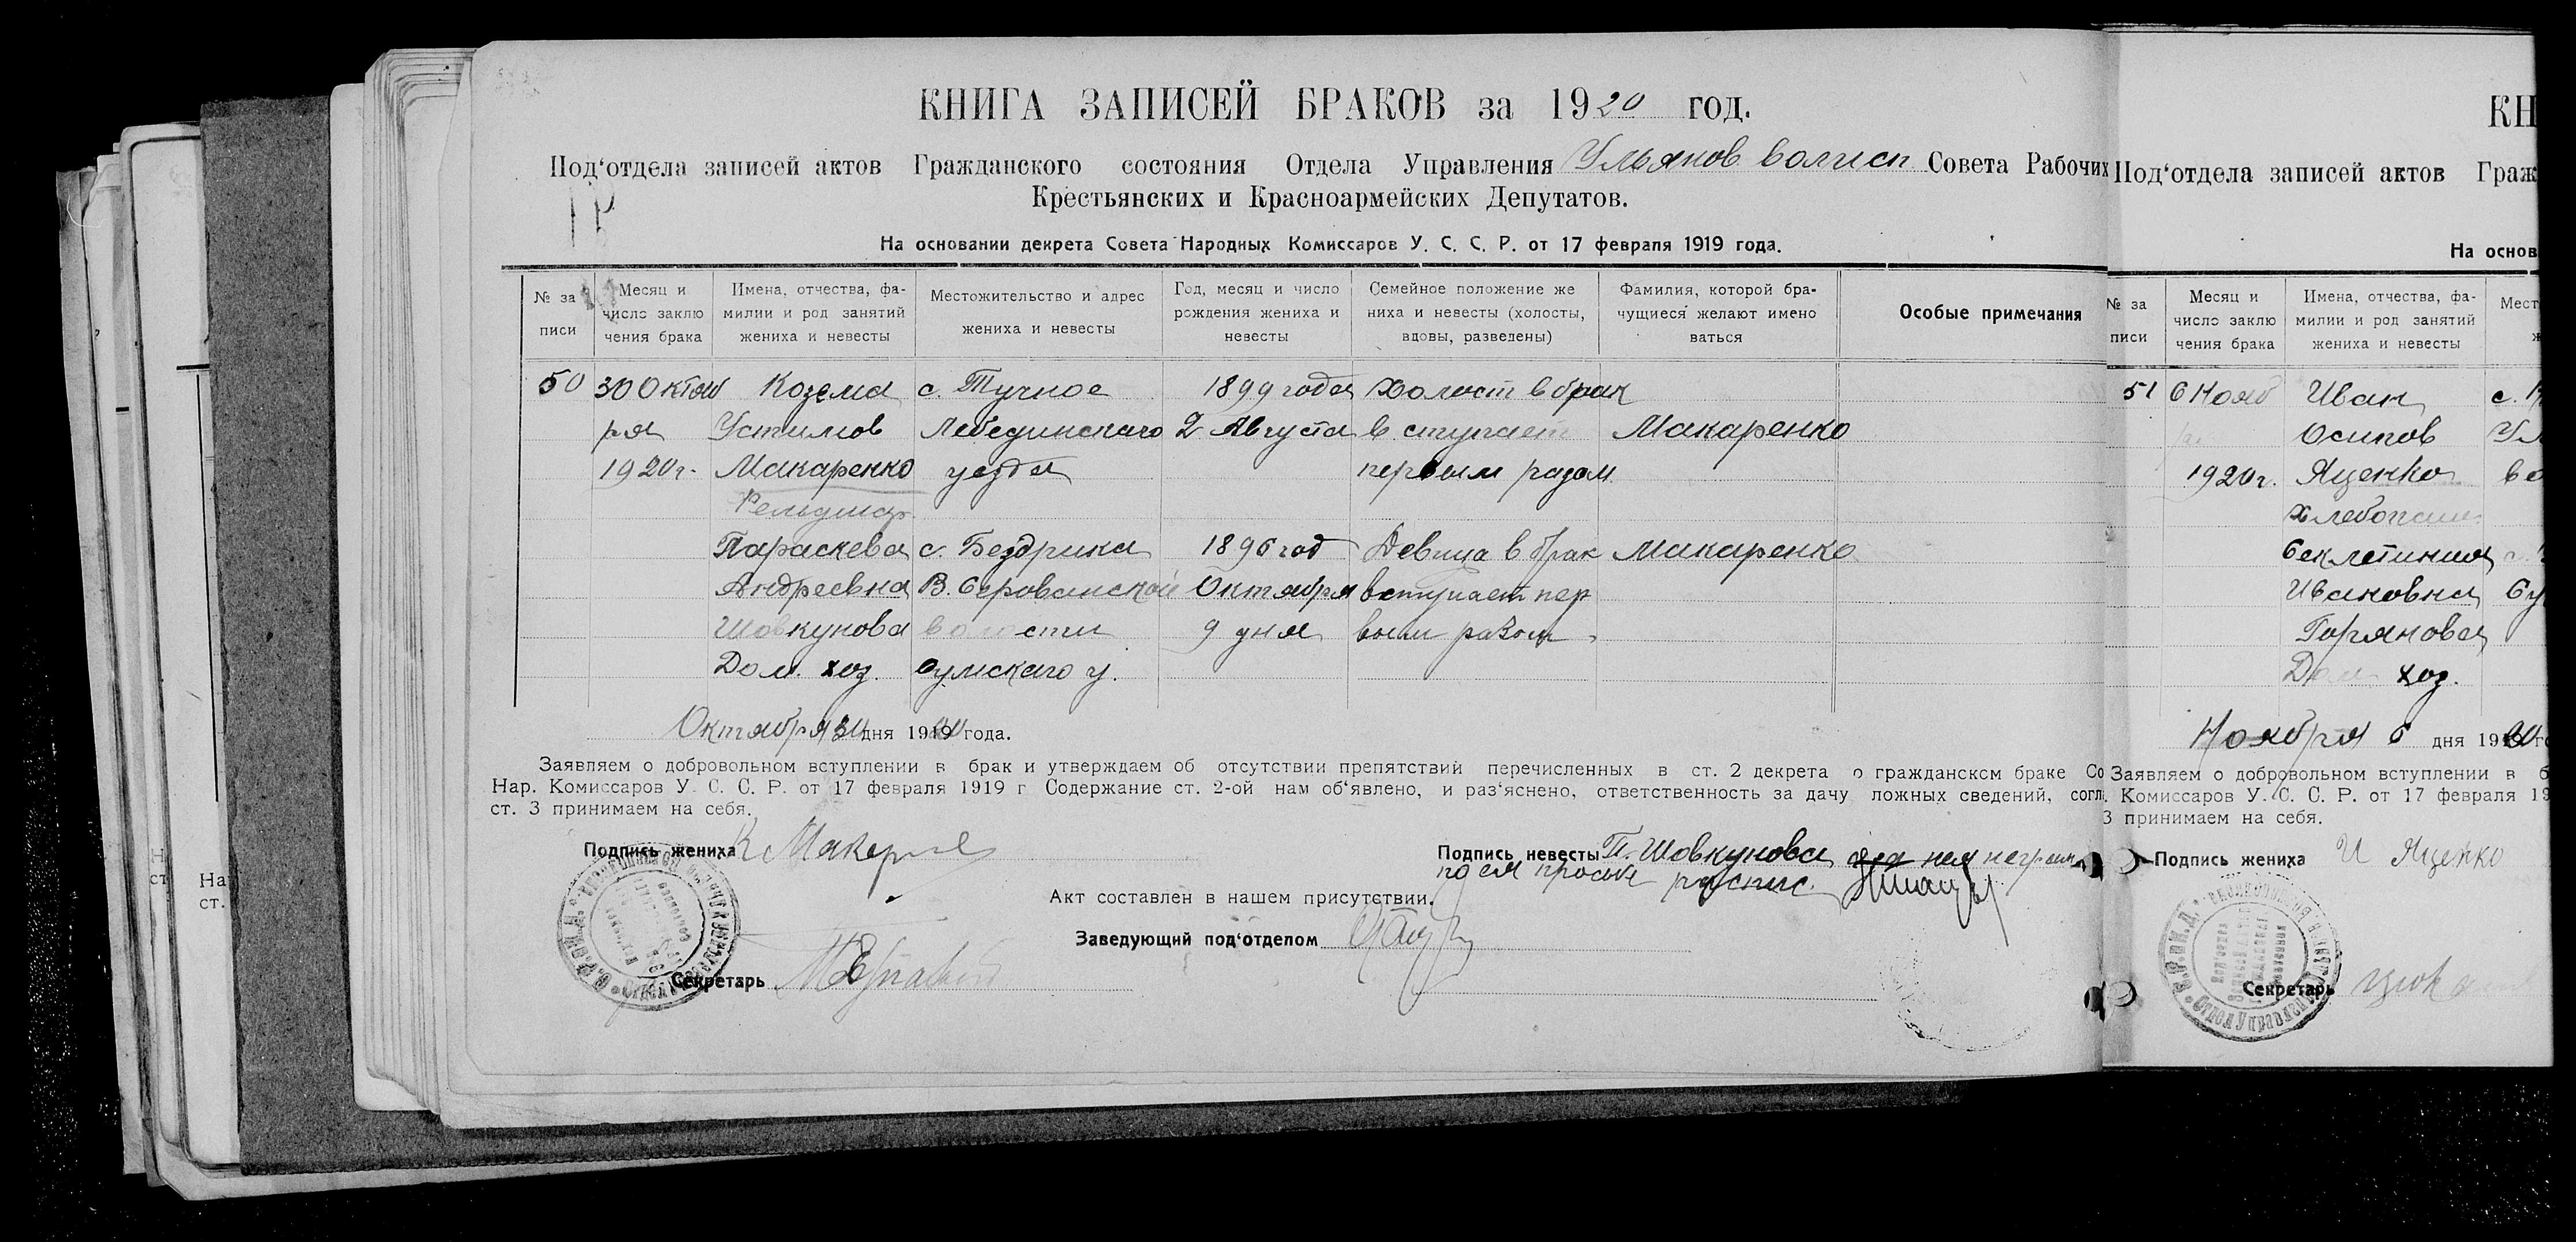 КНИГА ЗАПИСЕЙ БРАКОВ за 1920 год.
Под‘отдела записей актов Гражданского состояния Отдела Управления Ульянов. волисп. Совета Рабочих
Крестьянских и Красноармейских Депутатов.
На основании декрета Совета Народных Комиссаров У. С. С. Р. от 17 февраля 1919 года.
№ за писи
Месяц и число заклю чения брака
Имена, отчества, фа- милии и род занятий жениха и невесты
Местожительство и адрес жениха и невесты
Год, месяц и число рождения жениха и невесты
Семейное положение же ниха и невесты (холосты, вдовы, разведены)
Фамилия, которой бра- чущиеся желают имено ваться
Особые примечания
50 30 Октяб Козема с. Тучное 1899 года холост в брак
ря Устимов Лебединскаго 2 Августа вступает Макаренко
1920 г. Макаренко уезда первым разом
Фельдшер
Параскева с. Бездрика 1896 год Девица в брак Макаренко
Андреевна В. Сероватской Октября вступает пер
Шовкунова волости 9 дня вым разом
Дом. хоз. Сумскаго у.
Октября 30 дня 1920 года.
Заявляем о добровольном вступлении в брак и утверждаем об отсутствии препятствий перечисленных в ст. 2 декрета о гражданском браке Со
Нар. Комиссаров У. С. С. Р. от 17 февраля 1919 г Содержание ст. 2-ой нам об‘явлено, и раз‘яснено, ответственность за дачу ложных сведений, согл
ст. 3 принимаем на себя.
Подпись жениха К Макаренко
Подпись невесты П. Шовкунова а за нея неграм
по ея просьбе распис.
Акт составлен в нашем присутствии.
Заведующий под‘отделом
Секретарь
КН
Под‘отдела записей актов Граж
На основ
№ за писи
Месяц и число заклю чения брака
Имена, отчества, фа- милии и род занятий жениха и невесты
Мест
51 6 Нояб Иван с.
Осипов Ул
1920 г. Яценко во
Хлебопаш
Секлетиния
Ивановна Су
Горяновая
Дом. хоз.
Ноября 6 дня 1920 го
Заявляем о добровольном вступлении в б
. Комиссаров У. С. С. Р. от 17 февраля 19
3 принимаем на себя.
Подпись жениха И Яценко
Секретарь
На
ст.